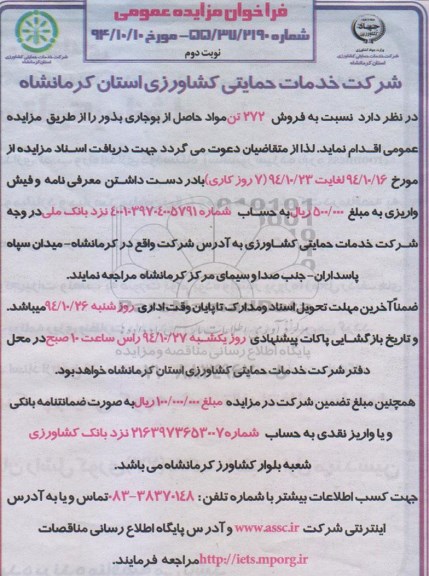 فراخوان مزایده عمومی
شماره ۵۵/۳۷/۲۱۹۰ - مورخ ۹۴/۱۰/۱۰
نوبت دوم
شرکت خدمات حمایتی کشاورزی استان کرمانشاه
در نظر دارد نسبت به فروش ۲۷۲ تن مواد حاصل از بوجاری بذور را از طریق مزایده
عمومی اقدام نماید. لذا از متقاضیان دعوت می گردد جهت دریافت اسناد مزایده از
مورخ ۹۴/۱۰/۱۶ لغایت ۹۴/۱۰/۲۳ (۷ روز کاری) با در دست داشتن معرفی نامه و فیش
واریزی به مبلغ ۵۰۰/۰۰۰ ریال به حساب شماره ۴۰۰۱۰۳۹۷۰۴۰۰۵۷۹۱ نزد بانک ملی در وجه
شرکت خدمات حمایتی کشاورزی به آدرس شرکت واقع در کرمانشاه - میدان سپاه
پاسداران - جنب صدا و سیمای مرکز کرمانشاه مراجعه نمایند.
ضمناً آخرین مهلت تحویل اسناد و مدارک تا پایان وقت اداری روز شنبه ۹۴/۱۰/۲۶ میباشد.
و تاریخ بازگشایی پاکات پیشنهادی روز یکشنبه ۹۴/۱۰/۲۷ راس ساعت ۱۰ صبح در محل
دفتر شرکت خدمات حمایتی کشاورزی استان کرمانشاه خواهد بود.
همچنین مبلغ تضمین شرکت در مزایده مبلغ ۱۰۰/۰۰۰/۰۰۰ ریال به صورت ضمانتنامه بانکی
و یا واریز نقدی به حساب شماره ۲۱۶۳۹۷۳۶۵۳۰۰۷ نزد بانک کشاورزی
شعبه بلوار کشاورز کرمانشاه می باشد.
جهت کسب اطلاعات بیشتر با شماره تلفن: ۳۸۳۷۰۱۴۸-۰۸۳ تماس و یا به آدرس
اینترنتی شرکت www.assc.ir و آدرس پایگاه اطلاع رسانی مناقصات
http://iets.mporg.ir مراجعه فرمایند.